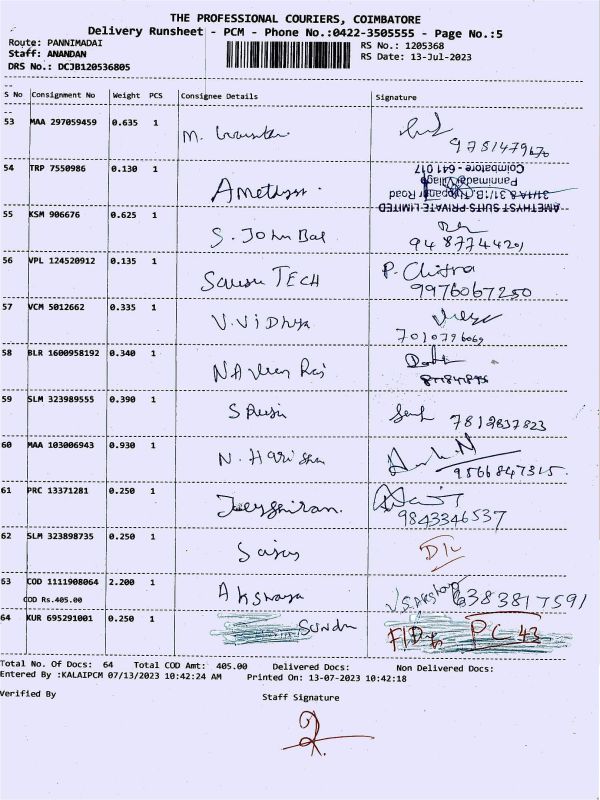 THE PROFESSIONAL COURIERS, COIMBATORE
Delivery Runsheet - PCM - Phone No.:0422-3505555 - Page No.:5
Route: PANNIMADAI
RS No.: 1205368
Staff: ANANDAN
RS Date: 13-Jul-2023
DRS No.: DCJB120536805
S No Consignment No Weight PCS Consignee Details Signature
53 MAA 297059459 0.635 1 M.
54 TRP 7550986 0.130 1 Amethyst.
Coimbatore - 641 017
Pannimadai Village
31/1A & 31/1B, Road
AMETHYST SUITS PRIVATE LIMITED
55 KSM 906676 0.625 1 S. John Bal
9487744201
56 VPL 124520912 0.135 1 TECH P. Chitra
9976067250
57 VCM 5012662 0.335 1 V. Vidhya
7010796069
58 BLR 1600958192 0.340 1 Naveen Raj
59 SLM 323989555 0.390 1 7812837823
60 MAA 103006943 0.930 1 N. Harisha
9566847315.
61 PRC 13371281 0.250 1 Jeyshiran.
9843346537
62 SLM 323898735 0.250 1
63 COD 1111908064 2.200 1 Akshaya 6383817591
COD Rs.405.00
64 KUR 695291001 0.250 1 Sundar PC 43
Total No. Of Docs: 64 Total COD Amt: 405.00 Delivered Docs: Non Delivered Docs:
Entered By :KALAIPCM 07/13/2023 10:42:24 AM Printed On: 13-07-2023 10:42:18
Verified By Staff Signature